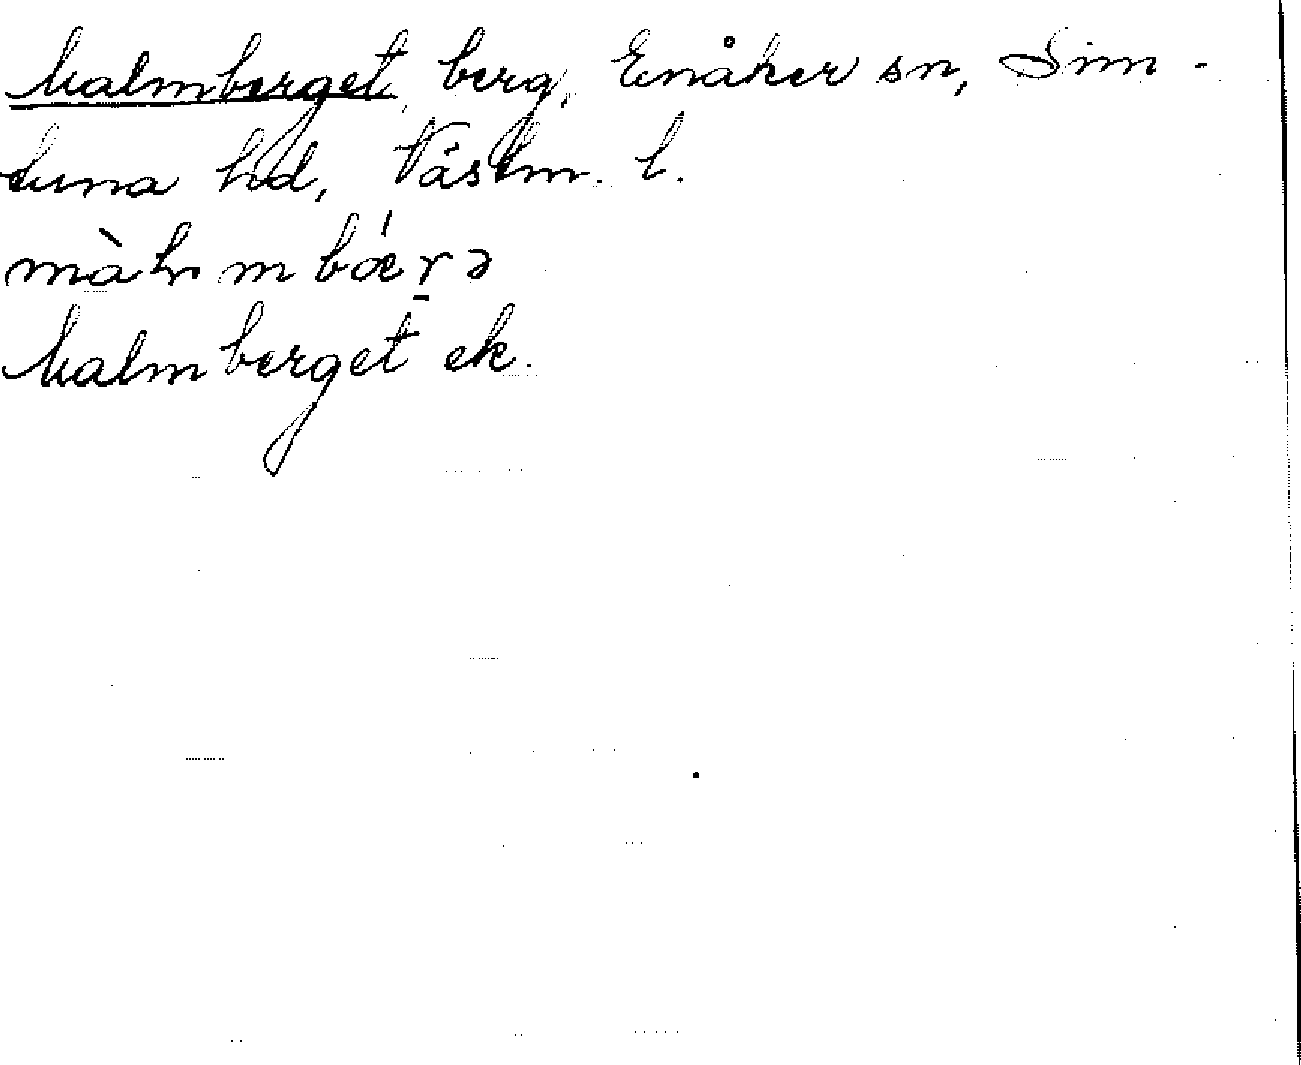 Malmberget, berg, Enåker sn, Sim-
tuna hd, Västm. l.
Malmberget ek.